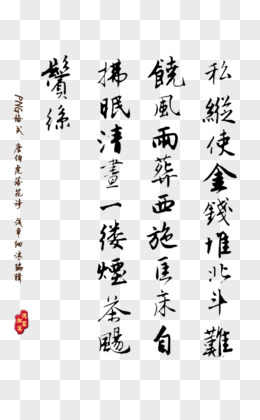 私縱使金錢堆北斗難
饒風雨葬西施匡床自
拂眠清晝一縷煙茶颺
鬢絲
PNG格式 唐伯虎落花诗 浅草细沫编辑